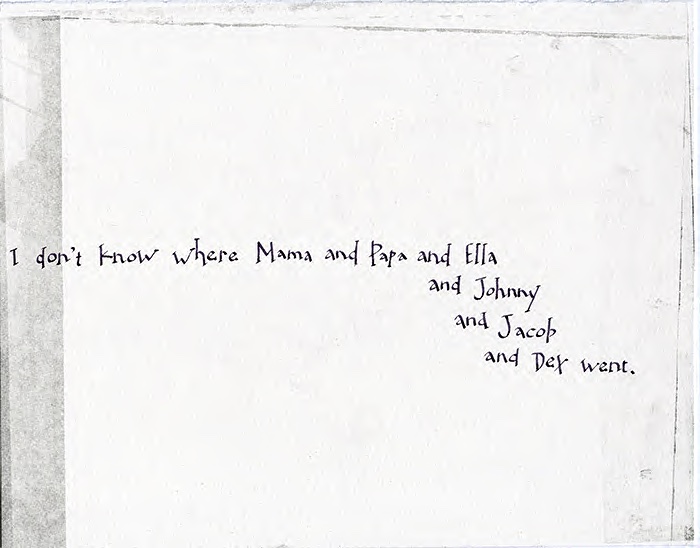 I don't know where Mama and Papa and Ella
and Johnny
and Jacob
and Dex went.